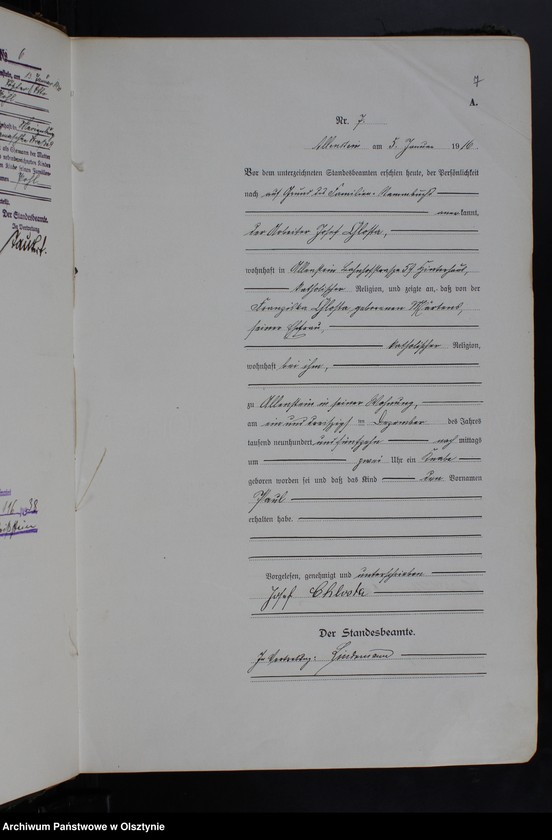 № 6
Pohl
Der Standesbeamte.
In Vertretung
7
A.
Nr. 7.
Allenstein am 5. Januar 1916.
Vor dem unterzeichneten Standesbeamten erschien heute, der Persönlichkeit
nach auf Grund des Familien-Stammbuchs
anerkannt,
der Arbeiter Josef Chlosta,
wohnhaft in Allenstein Bahnhofstrasse Hinterhaus,
katholischer Religion, und zeigte an, daß von der
Franziska Chlosta geborenen Märtens,
seiner Ehefrau,
katholischer Religion,
wohnhaft bei ihm,
zu Allenstein in seiner Wohnung,
am ein und dreißigsten Dezember des Jahres
tausend neunhundert und fünfzehn nach mittags
um zwei Uhr ein Knabe
geboren worden sei und daß das Kind den Vornamen
Paul
erhalten habe.
Vorgelesen, genehmigt und unterschrieben
Josef Chlosta
Der Standesbeamte.
In Vertretung: Lindemann
Archiwum Państwowe w Olsztynie